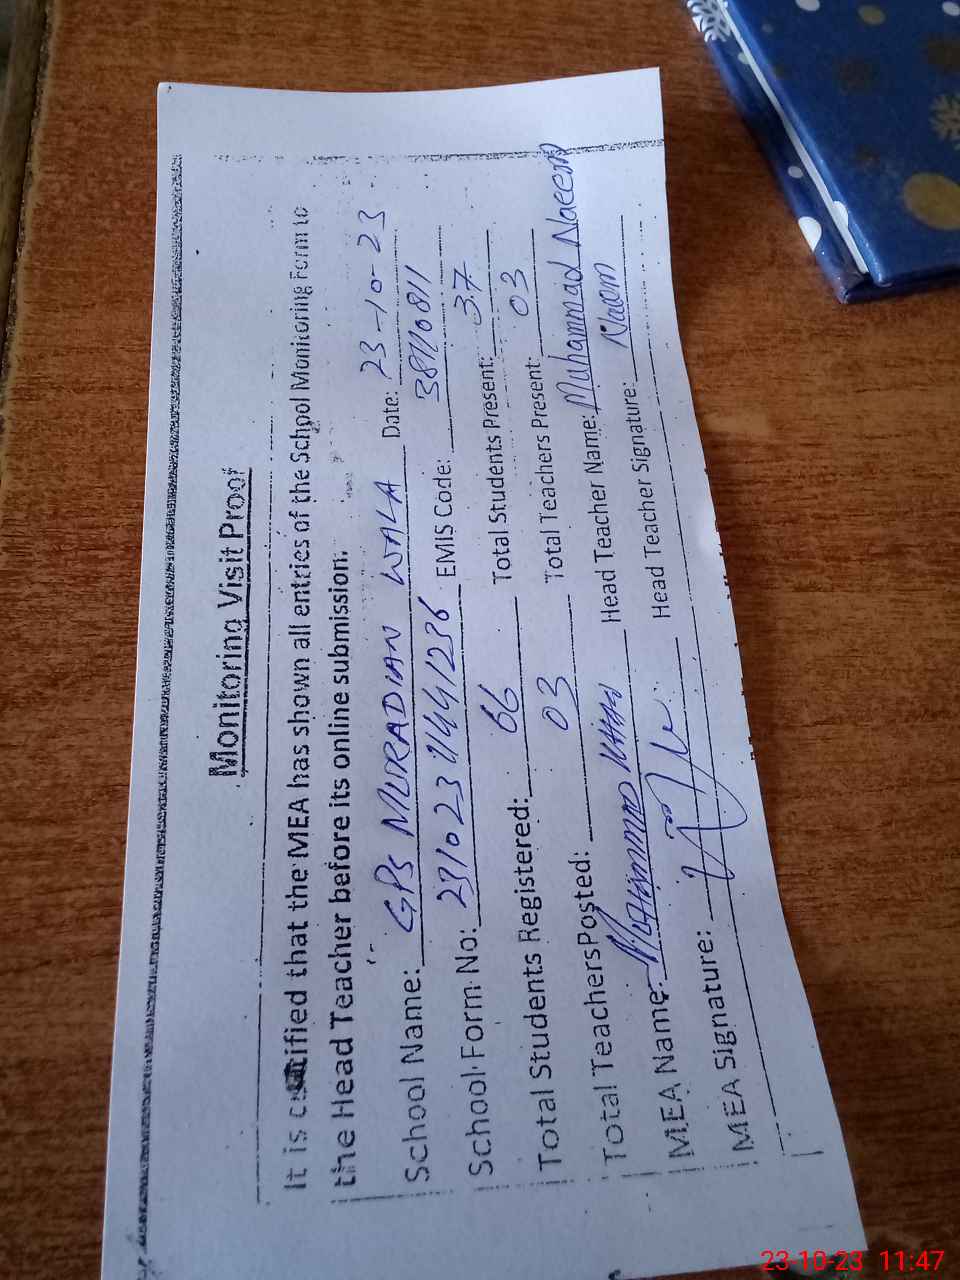 Monitoring Visit Proof
It is certified that the MEA has shown all entries of the School Monitoring Form to
the Head Teacher before its online submission.
School Name: GPS MURADIAN WALA Date: 23-10-23
School Form No: EMIS Code: 38110811
Total Students Registered: 66 Total Students Present: 37
Total Teachers Posted: 03 Total Teachers Present: 03
MEA Name: Muhammad Head Teacher Name: Muhammad Naeem
MEA Signature: Head Teacher Signature: Naeem
23-10-23 11:47